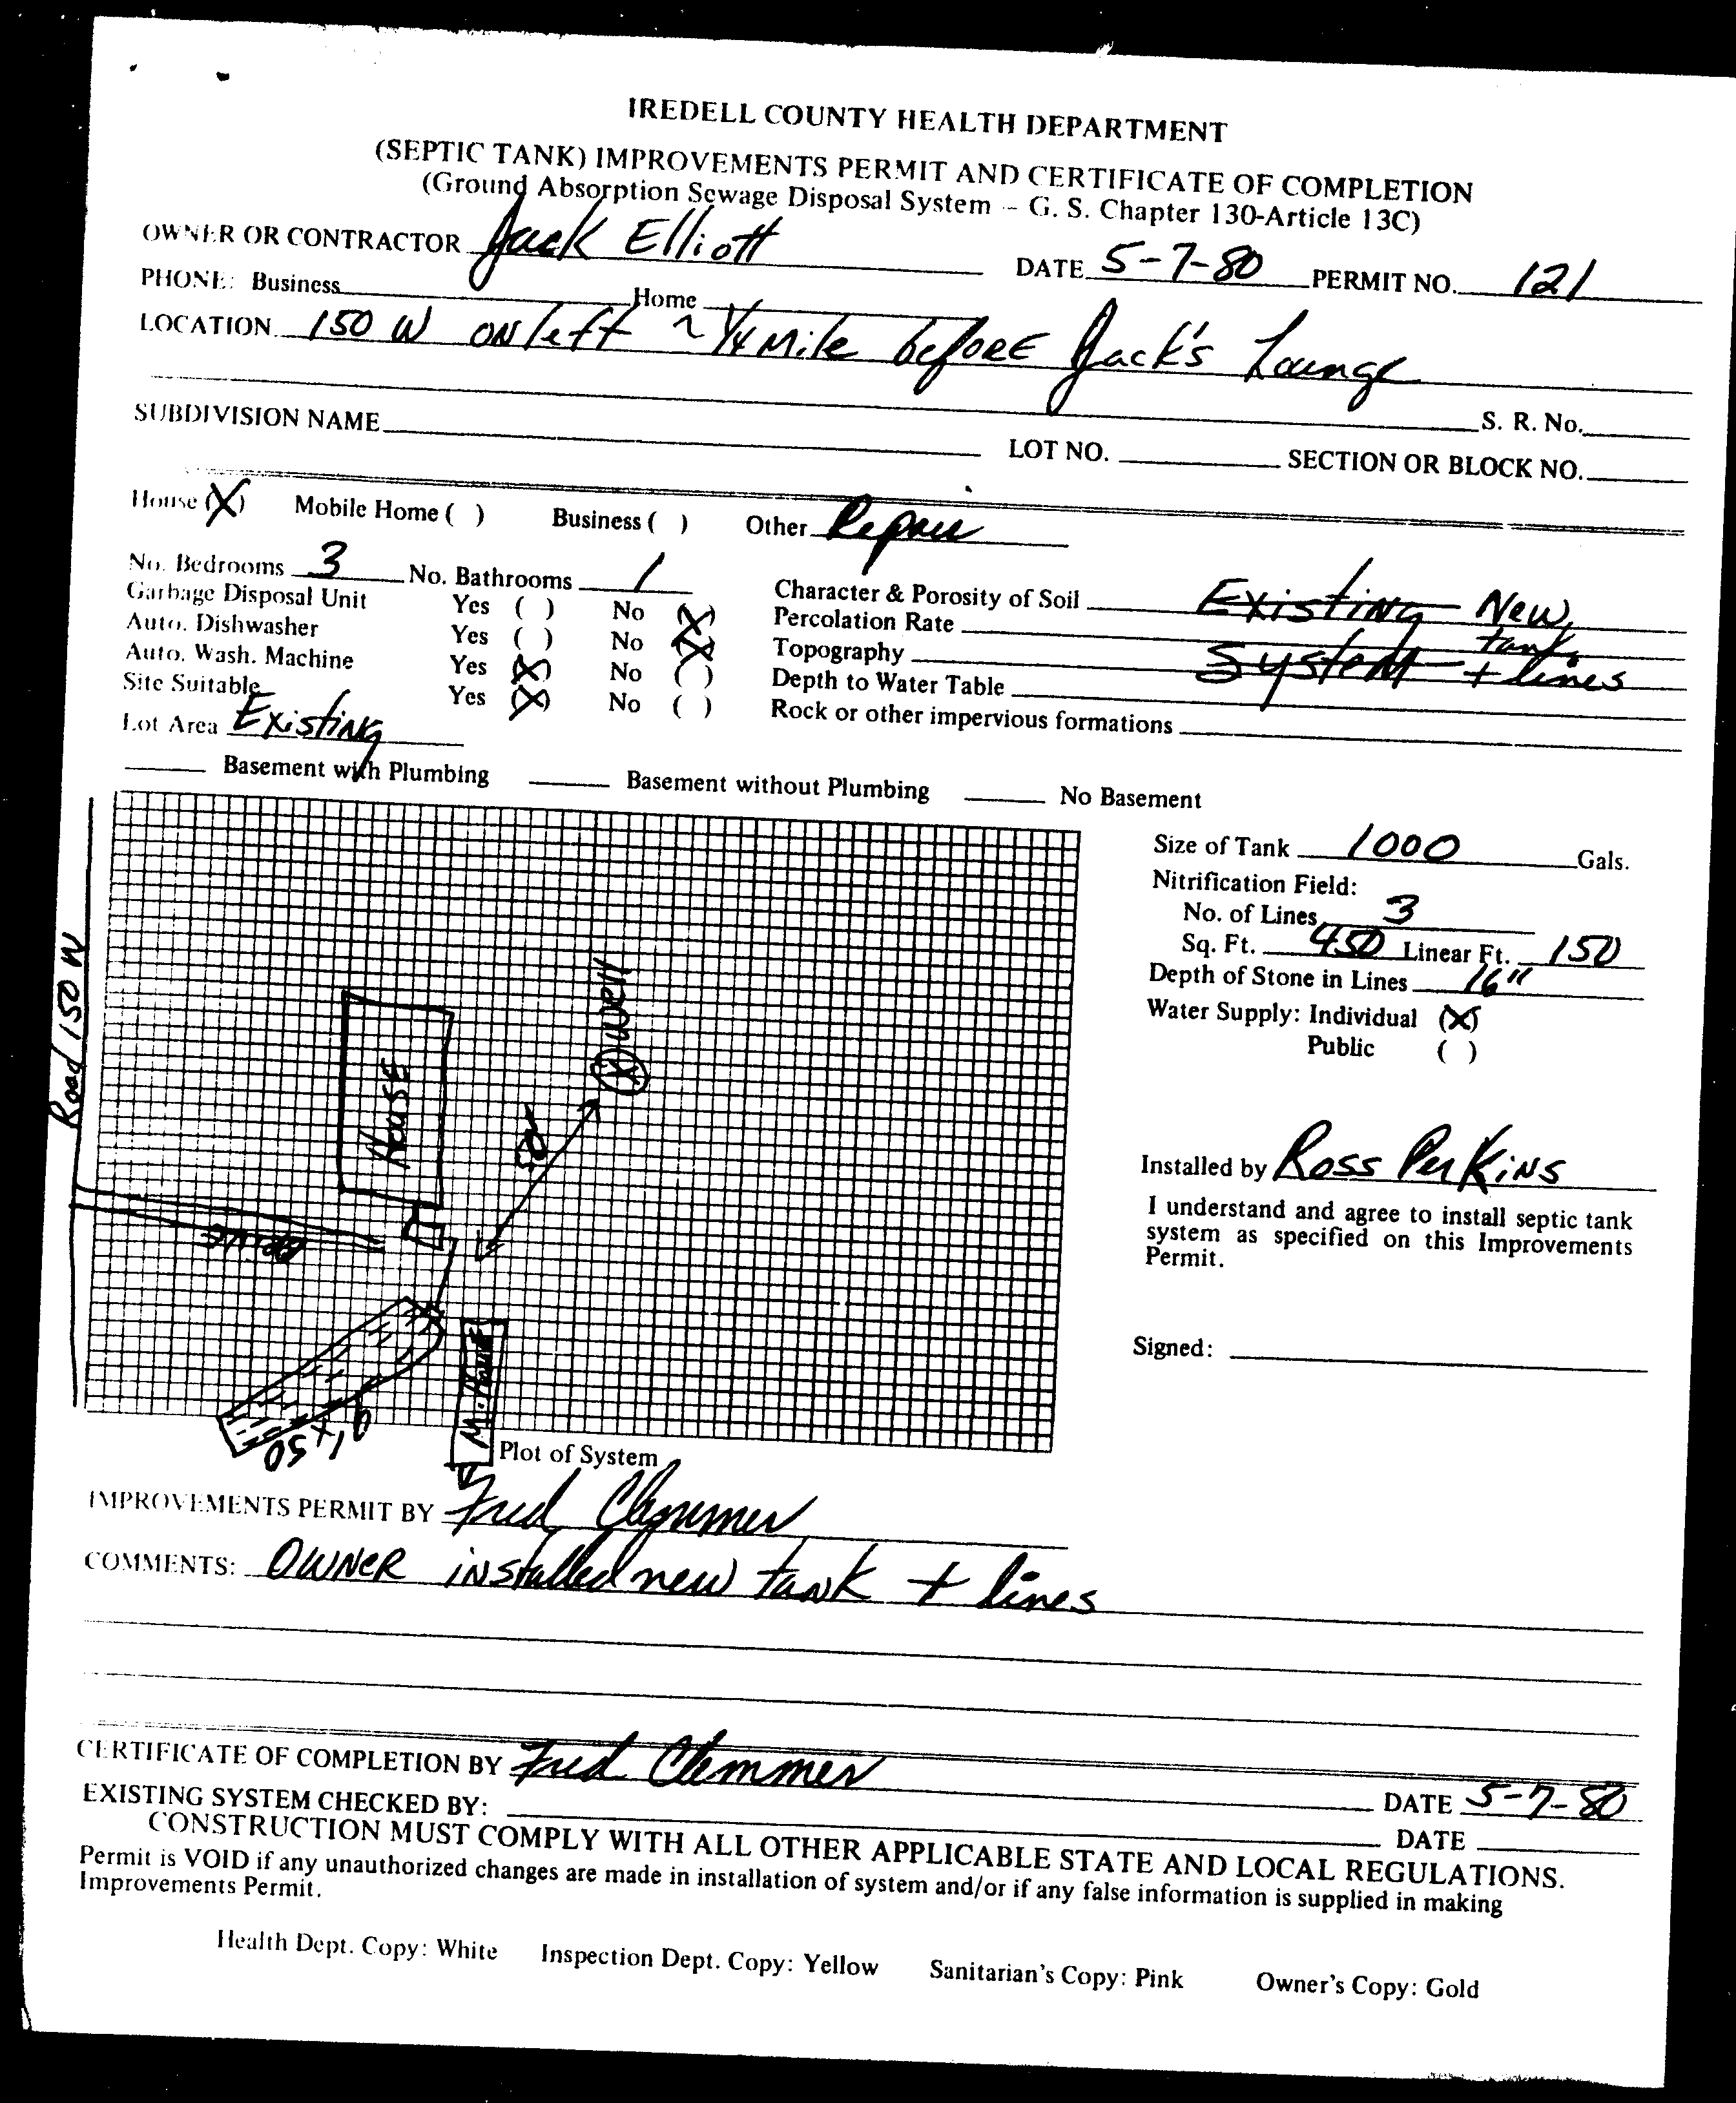 IREDELL COUNTY HEALTH DEPARTMENT
(SEPTIC TANK) IMPROVEMENTS PERMIT AND CERTIFICATE OF COMPLETION
(Ground Absorption Sewage Disposal System -- G. S. Chapter 130-Article 13C)
OWNER OR CONTRACTOR Jack Elliott DATE 5-7-80 PERMIT NO. 121
PHONE: Business Home
LOCATION 150 W ON left ~ 1/4 Mile before Jack's Lounge
S. R. No.
SUBDIVISION NAME LOT NO. SECTION OR BLOCK NO.
House (X) Mobile Home ( ) Business ( ) Other Repair
No. Bedrooms 3 No. Bathrooms 1
Garbage Disposal Unit Yes ( ) No (X)
Auto. Dishwasher Yes ( ) No (X)
Auto. Wash. Machine Yes (X) No ( )
Site Suitable Yes (X) No ( )
Lot Area Existing
Character & Porosity of Soil Existing New
Percolation Rate tank
Topography System + lines
Depth to Water Table
Rock or other impervious formations
Basement with Plumbing Basement without Plumbing No Basement
Road 150 W
House
well
Drive
M. Home
Plot of System
Size of Tank 1000 Gals.
Nitrification Field:
No. of Lines 3
Sq. Ft. 450 Linear Ft. 150
Depth of Stone in Lines 16"
Water Supply: Individual (X)
Public ( )
Installed by Ross Perkins
I understand and agree to install septic tank
system as specified on this Improvements
Permit.
Signed:
IMPROVEMENTS PERMIT BY Fred Clemmer
COMMENTS: OWNER installed new tank + lines
CERTIFICATE OF COMPLETION BY Fred Clemmer DATE 5-7-80
EXISTING SYSTEM CHECKED BY: DATE
CONSTRUCTION MUST COMPLY WITH ALL OTHER APPLICABLE STATE AND LOCAL REGULATIONS.
Permit is VOID if any unauthorized changes are made in installation of system and/or if any false information is supplied in making
Improvements Permit.
Health Dept. Copy: White Inspection Dept. Copy: Yellow Sanitarian's Copy: Pink Owner's Copy: Gold